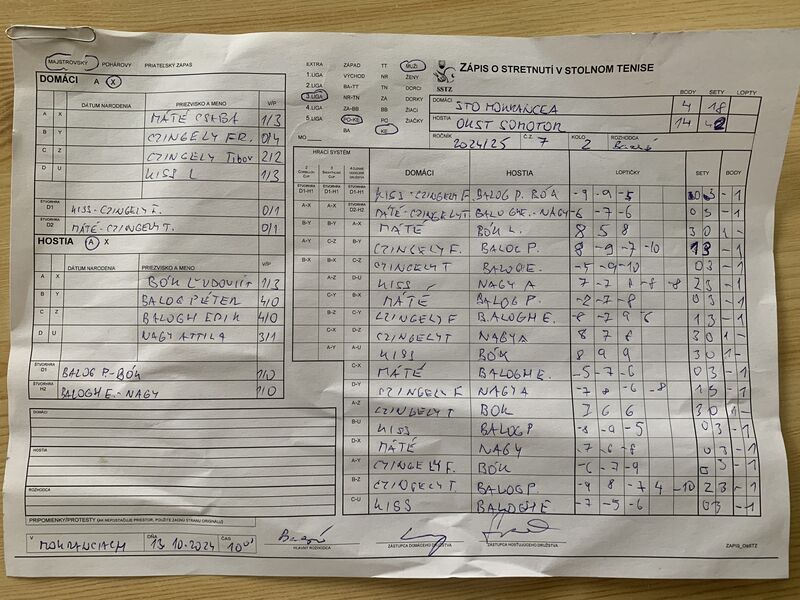 MAJSTROVSKÝ POHÁROVÝ PRIATEĽSKÝ ZÁPAS
DOMÁCI A X
DÁTUM NARODENIA PRIEZVISKO A MENO V/P
A X MÁTÉ CSABA 1/3
B Y CZINGELY FR. 0/4
C Z CZINGELY Tibor 2/2
D U KISS L 1/3
ŠTVORHRA D1 KISS-CZINGELY F. 0/1
ŠTVORHRA D2 MÁTÉ-CZINGELY T. 0/1
HOSTIA A X
DÁTUM NARODENIA PRIEZVISKO A MENO V/P
A X BÓK ĽUDOVIÍT 1/3
B Y BALOG PÉTER 4/0
C Z BALOGH ERIK 4/0
D U NAGY ATTILA 3/1
ŠTVORHRA D1 BALOG P.-BÓK 1/0
ŠTVORHRA H2 BALOGH E.-NAGY 1/0
DOMÁCI
HOSTIA
ROZHODCA
PRIPOMIENKY/PROTESTY (AK NEPOSTAČUJE PRIESTOR, POUŽITE ZADNÚ STRANU ORIGINÁLU)
V MOKRANCIACH DŇA 13.10.2024 ČAS 10 00
HLAVNÝ ROZHODCA
ZÁSTUPCA DOMÁCEHO DRUŽSTVA
ZÁSTUPCA HOSŤUJÚCEHO DRUŽSTVA
EXTRA ZÁPAD TT MUŽI
1.LIGA VÝCHOD NR ŽENY
2 LIGA BA-TT TN DORCI
3.LIGA NR-TN ZA DORKY
4.LIGA ZA-BB BB ŽIACI
5.LIGA PO-KE PO ŽIAČKY
MO BA KE
SSTZ
ZÁPIS O STRETNUTÍ V STOLNOM TENISE
BODY SETY LOPTY
DOMÁCI STO MOKRANCEA 4 18
HOSTIA OKST SOMOTOR 14 42
ROČNÍK 2024/25 Č.Z. 7 KOLO 2 ROZHODCA
HRACÍ SYSTÉM
DOMÁCI HOSTIA LOPTIČKY SETY BODY
ŠTVORHRA D1-H1 ŠTVORHRA D1-H1 ŠTVORHRA D1-H1 KISS-CZINGELY F. BALOG P. BÓK -9 -9 -5 0 3 -1
A-X A-X ŠTVORHRA D2-H2 MÁTÉ-CZINGELY T BALOGH E.-NAGY -6 -7 -6 0 3 -1
B-Y B-Y A-X MÁTÉ BÓK L. 8 5 8 3 0 1 -
A-Y C-Z B-Y CZINGELY F. BALOG P. 8 -9 -7 -10 1 3 -1
B-X B-X C-Z CZINGELY T BALOG E. -5 -9 -10 0 3 -1
A-Z D-U KISS NAGY A 7 -7 8 -8 -8 2 3 -1
C-Y B-X MÁTÉ BALOG P. -2 -7 -8 0 3 -1
B-Z C-Y CZINGELY F BALOGH E. -8 -7 9 -6 1 3 -1
C-X D-Z CZINGELY T NAGY A 8 7 8 3 0 1 -
A-Y A-U KISS BÓK 8 9 9 3 0 1 -
C-X MÁTÉ BALOGH E. -5 -7 -6 0 3 -1
D-Y CZINGELY F NAGY A -7 8 -6 -8 1 3 -1
A-Z CZINGELY T BÓK 3 6 6 3 0 1 -
B-U KISS BALOG P -8 -9 -5 0 3 -1
D-X MÁTÉ NAGY -7 -6 -8 0 3 -1
A-Y CZINGELY F. BÓK -6 -7 -9 0 3 -1
B-Z CZINGELY T. BALOG P -9 8 -7 4 -10 2 3 -1
C-U KISS BALOGH E -7 -5 -6 0 3 -1
ZÁPIS_OsSTZ